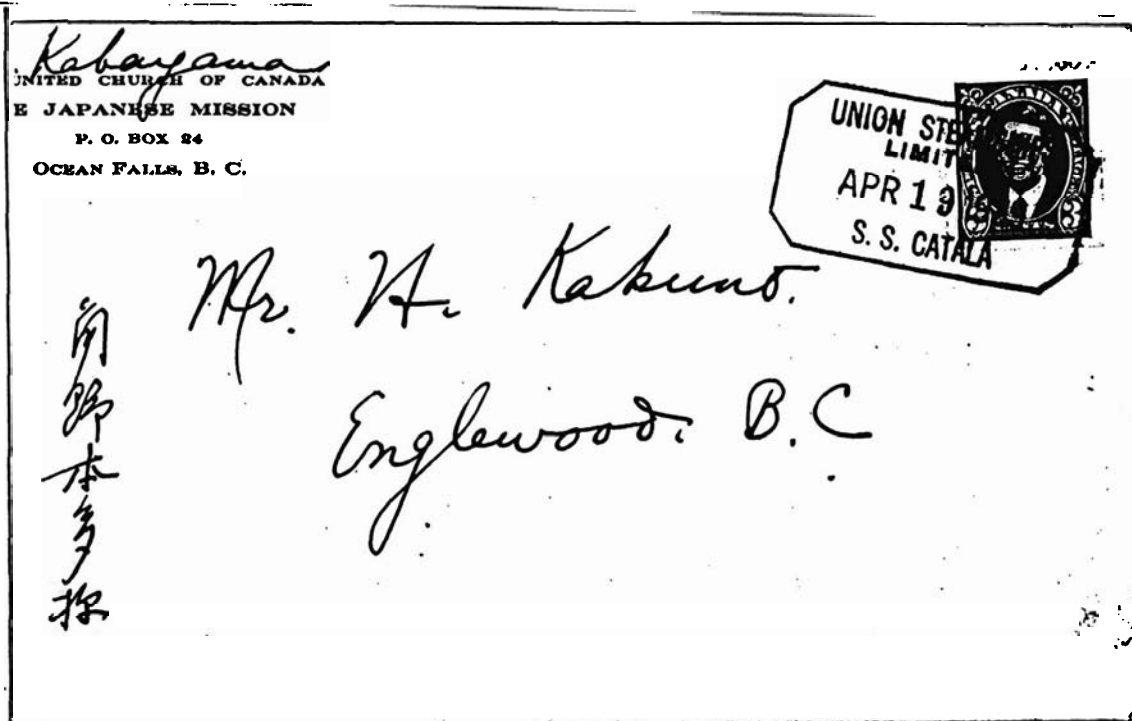 Kabayama
UNITED CHURCH OF CANADA
E JAPANESE MISSION
P. O. BOX 24
OCEAN FALLS, B. C.
UNION STE
LIMIT
APR 19
S. S. CATALA
CANADA
3
Mr. H. Kakuno.
Englewood. B.C
角野本多様